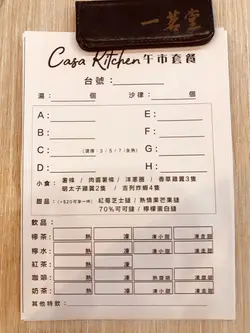 一茗堂
Casa Kitchen 午市套餐
台號：
湯： 個 沙律： 個
A： E：
B： F：
C： (選擇：3 / 5 / 7 /全熟) G：
D： H：
小食： 薯條 / 肉醬薯條 / 洋蔥圈 / 香草雞翼3隻
明太子雞翼2隻 / 吉列炸蝦4隻
甜品： (+$20可享一件) 紅莓芝士撻 / 熱情果芒果撻
70%可可撻 / 檸檬蛋白撻
飲品：
檸茶： 熱 凍 凍小甜 凍走甜
檸水： 熱 凍 凍小甜 凍走甜
紅茶： 熱 凍
咖啡： 熱 凍 熱齋啡 凍齋啡
奶茶： 熱 凍 凍小甜 凍走甜
其他特飲：